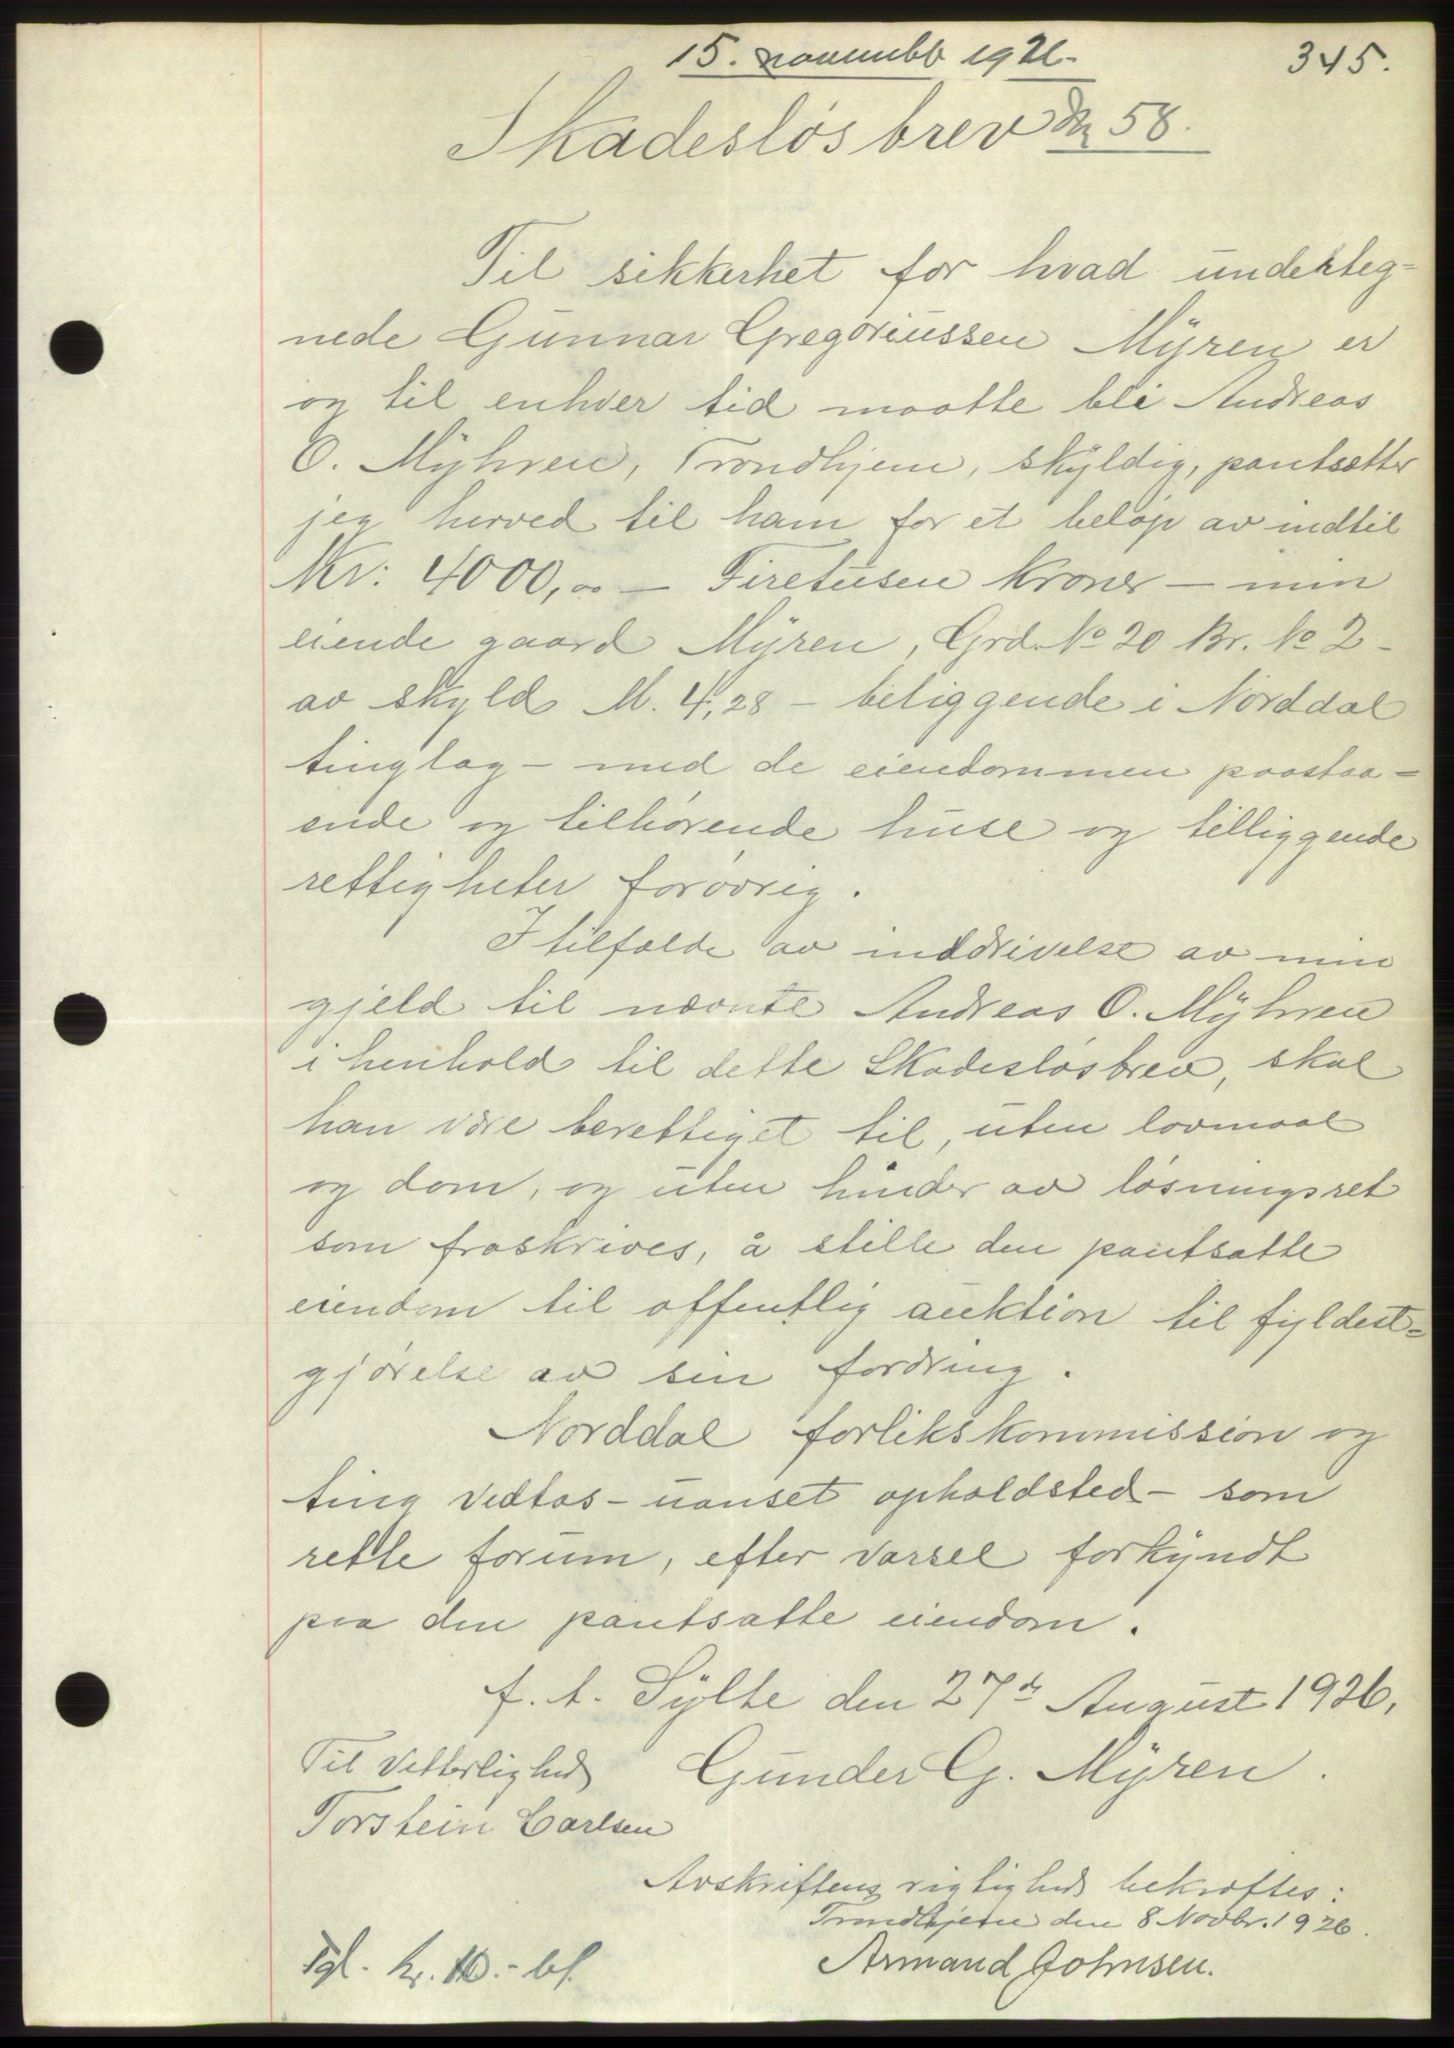 15. novembb 1926.
345.
Skadesløsbrev
58.
Til sikkerhet for hvad underteg=
nede Gunnar Gregoriussen Myren er
og til enhver tid maatte bli Andreas
O. Myhren, Trondhjem, skyldig, pantsætter
jeg herved til ham for et beløp av indtil
Kr: 4000,00 — Firetusen Kroner — min
eiende gaard Myren, Grd. No 20 Br. No 2 -
av skyld M. 4,28 - beliggende i Norddal
tinglag - med de eiendommen paastaa=
ende og tilhørende huse og tilliggende
rettigheter forøvrig.
I tilfælde av inddrivelse av min
gjeld til nævnte Andreas O. Myhren
i henhold til dette Skadesløsbrev, skal
han være berettiget til, uten lovmaal
og dom, og uten hinder av løsningsret
som fraskrives, å stille den pantsatte
eiendom til offentlig auktion til fyldest=
gjørelse av sin fordring.
Norddal forlikskommission og
ting vedtas - uanset opholdsted - som
rette forum, efter varsel forkyndt
paa den pantsatte eiendom.
f. t. Sylte den 27de August 1926.
Til Vitterlighed
Gunder G. Myren.
Torstein Carlsen
Avskriftens rigtighed bekræftes:
Trondhjem den 8 Novbr. 1926.
Armand Johnsen.
Tgl. kr. 10.- bt.